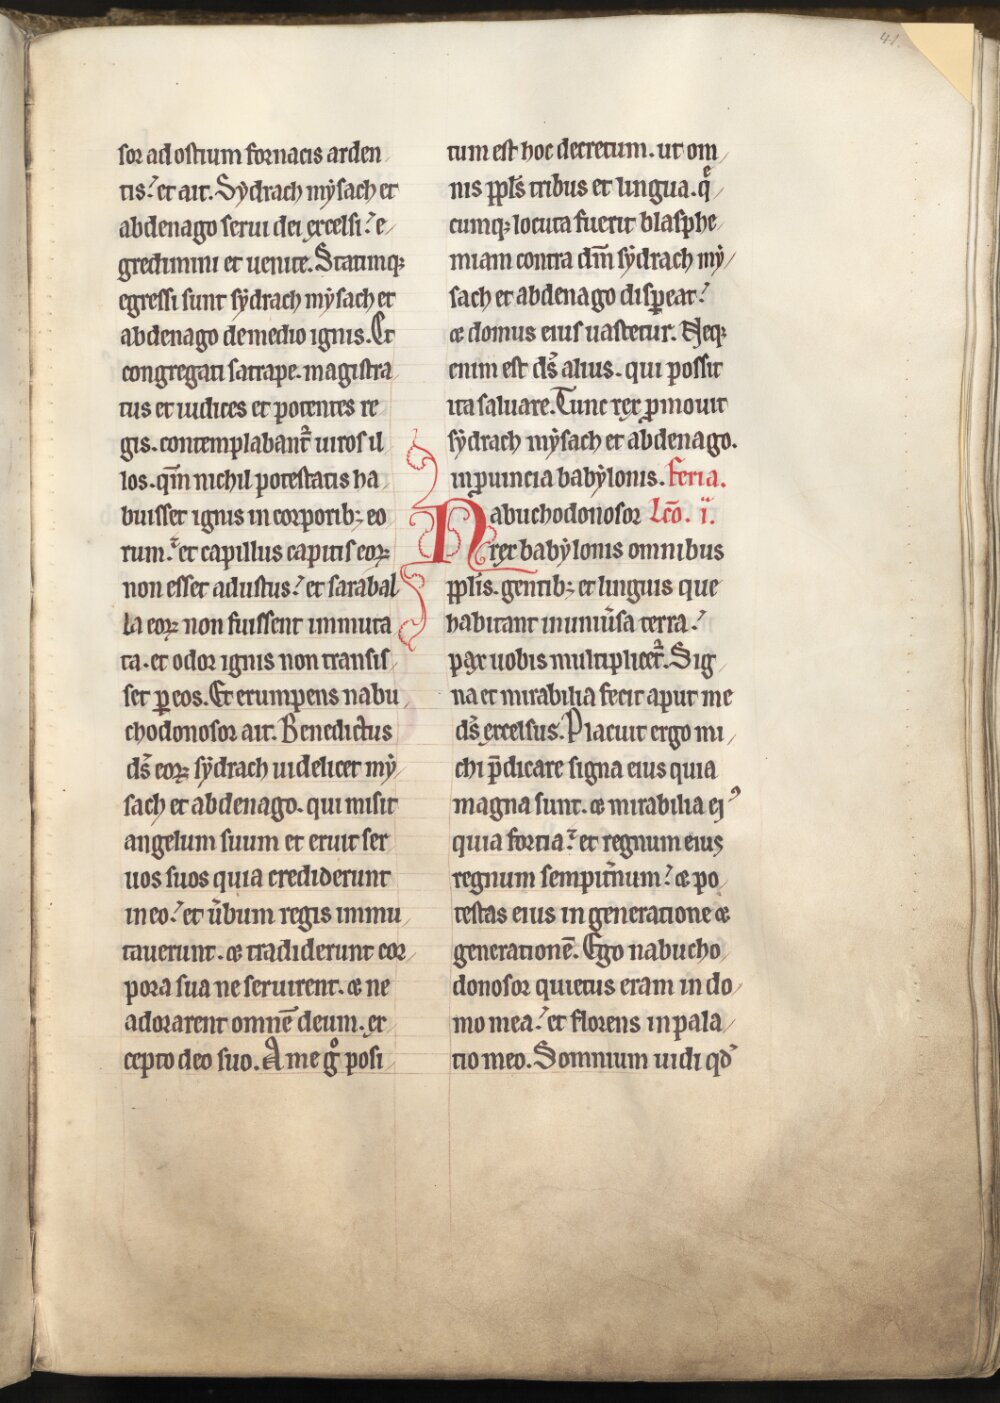 41.
sor ad ostium fornacis arden
tis? et ait. Sydrach mysach et
abdenago serui dei excelsi? e
gredimini et uenite. Statimq;
egressi sunt sydrach mysach et
abdenago de medio ignis. Et
congregati satrape. magistra
tus et iudices et potentes re
gis. contemplabant᷑ uiros il
los. qm̄ nichil potestatis ha
buisset ignis in corporib; eo
rum? et capillus capitis eoꝝ
non esset adustus? et sarabal
la eoꝝ non fuissent immuta
ta. et odor ignis non transis
set ꝑ eos. Et erumpens nabu
chodonosor ait. Benedictus
ds̄ eoꝝ sydrach uidelicet my
sach et abdenago. qui misit
angelum suum et eruit ser
uos suos quia crediderunt
in eo? et u̾bum regis immu
tauerunt. & tradiderunt cor
pora sua ne seruirent. & ne
adorarent omnē deum. ex
cepto deo suo. A me gͦ posi
tum est hoc decretum. ut om
nis ppl̄s tribus et lingua. qͤ
cumq; locuta fuerit blasphe
miam contra dm̄ sydrach my
sach et abdenago disꝑeat?
& domus eius uastetur. Neq;
enim est ds̄ alius. qui possit
ita saluare. Tunc rex ꝓmouit
sydrach mysach et abdenago.
in ꝓuincia babylonis. Feria.
Nabuchodonosor Lc̄o. i. ii
rex babylonis omnibus
ppl̄is. gentib; et linguis que
habitant in uniu̾sa terra?
pax uobis multiplicet᷑. Sig
na et mirabilia fecit aput me
ds̄ excelsus. Placuit ergo mi
chi p̄dicare signa eius quia
magna sunt. & mirabilia eiꝰ
quia fortia? et regnum eius
regnum sempit̾num? & po
testas eius in generatione &
generationē. Ego nabucho
donosor quietus eram in do
mo mea? et florens in pala
tio meo. Somnium uidi qd̾